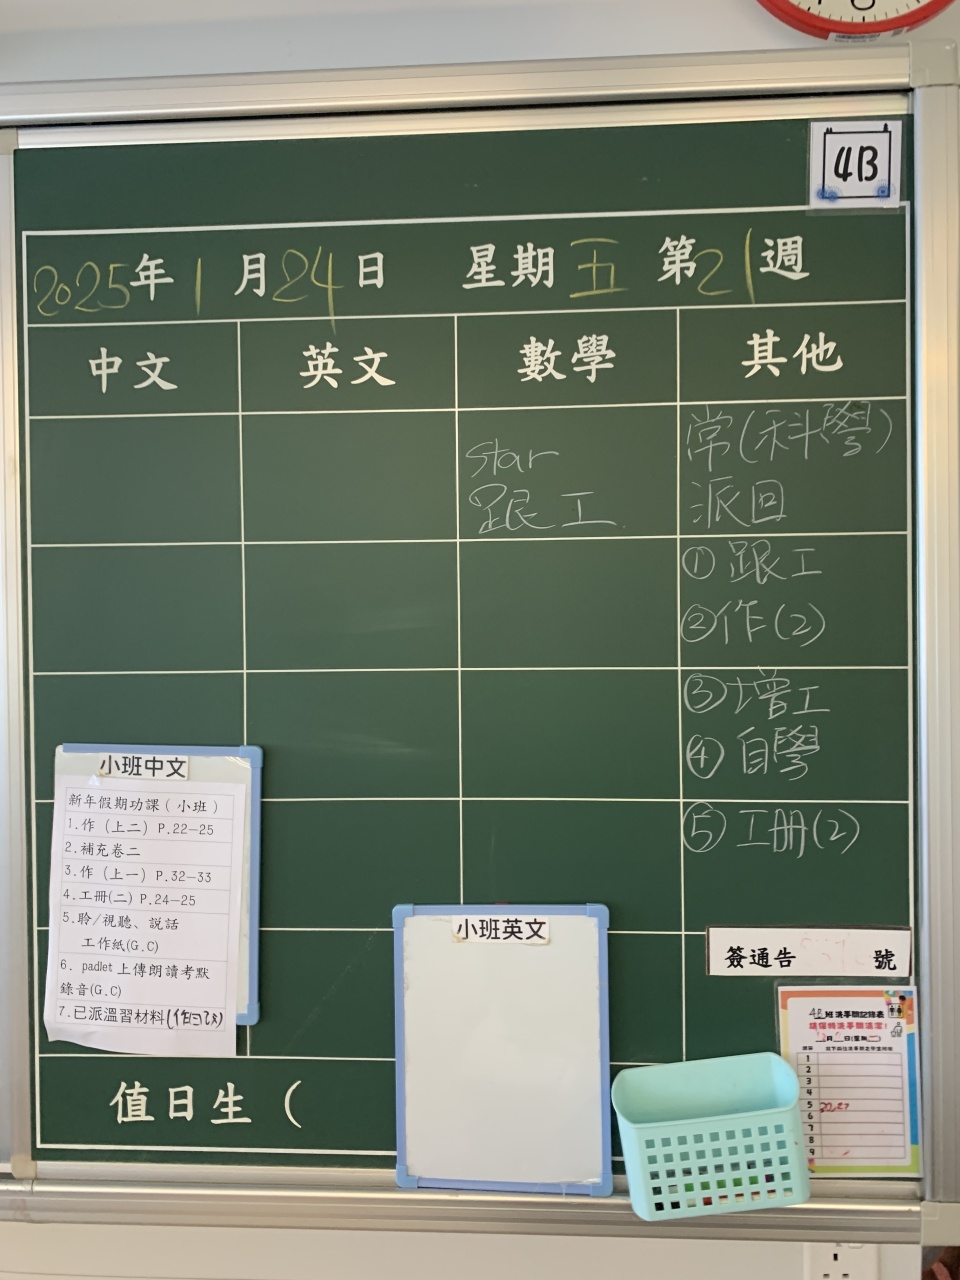 4B
2025年1月24日 星期五 第21週
中文 英文 數學 其他
Star
跟工
常(科學)
派回
①跟工
②作(2)
③增工
④自學
⑤工册(2)
小班中文
新年假期功課(小班)
1.作(上二) P.22-25
2.補充卷二
3.作(上一) P.32-33
4.工冊(二) P.24-25
5.聆/視聽、說話
工作紙(G.C)
6. padlet上傳朗讀考默
錄音(G.C)
7.已派溫習材料
小班英文
簽通告 號
4B班洗手間記錄表
請保持洗手間清潔!
月 日(星期 )
1
2
3
4
5 20,27
6
7
8
9
值日生 (